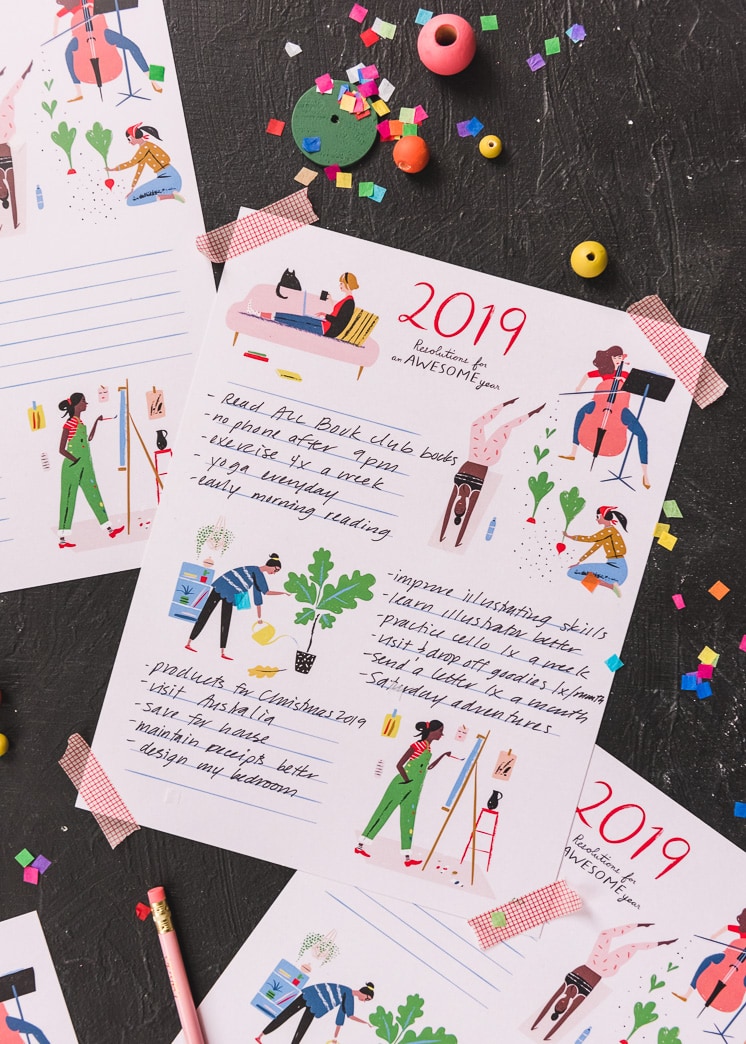 2019
Resolutions for
an AWESOME year
- Read ALL Book Club books
- no phone after 9pm
- exercise 4x a week
- yoga everyday
- early morning reading
- improve illustrating skills
- learn illustrator better
- practice cello 1x a week
- visit & drop off goodies 1x/month
- send a letter 1x a month
- Saturday adventures
- products for Christmas 2019
- visit Australia
- save for house
- maintain receipts better
- design my bedroom
2019
Resolutions for
AWESOME
year